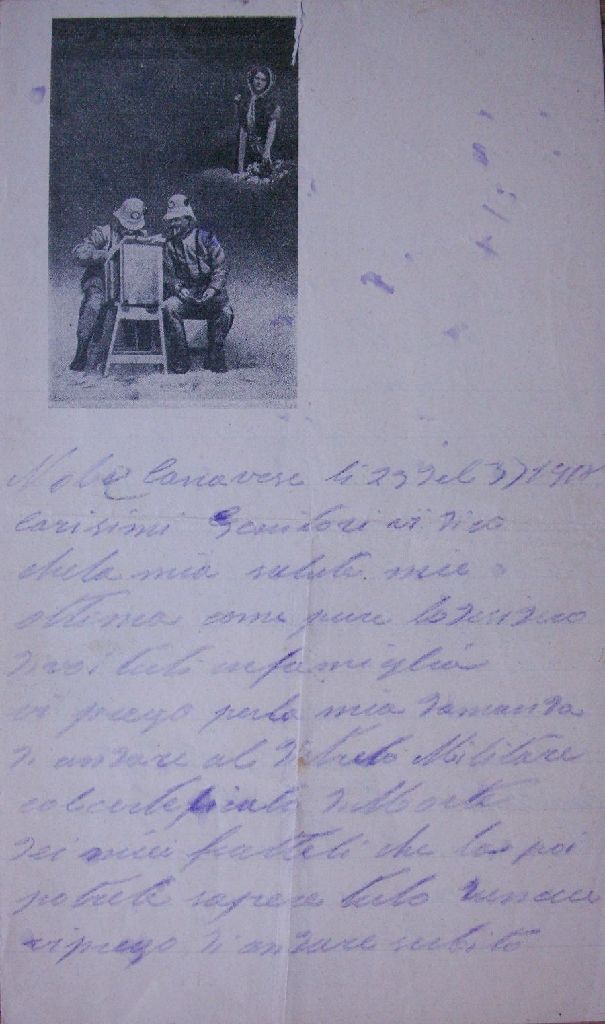 Canavese li 23 del 3) 191
Carisimi Genitori vi dico
chela mia salute mie
ottima come pure lo desidero
di voi tuti in famiglia
vi prego per la mia domanda
di andare al Distreto Militare
col certeficato di Morte
dei miei fratteli che la poi
potrete sapere tuto
vi prego di andare subito